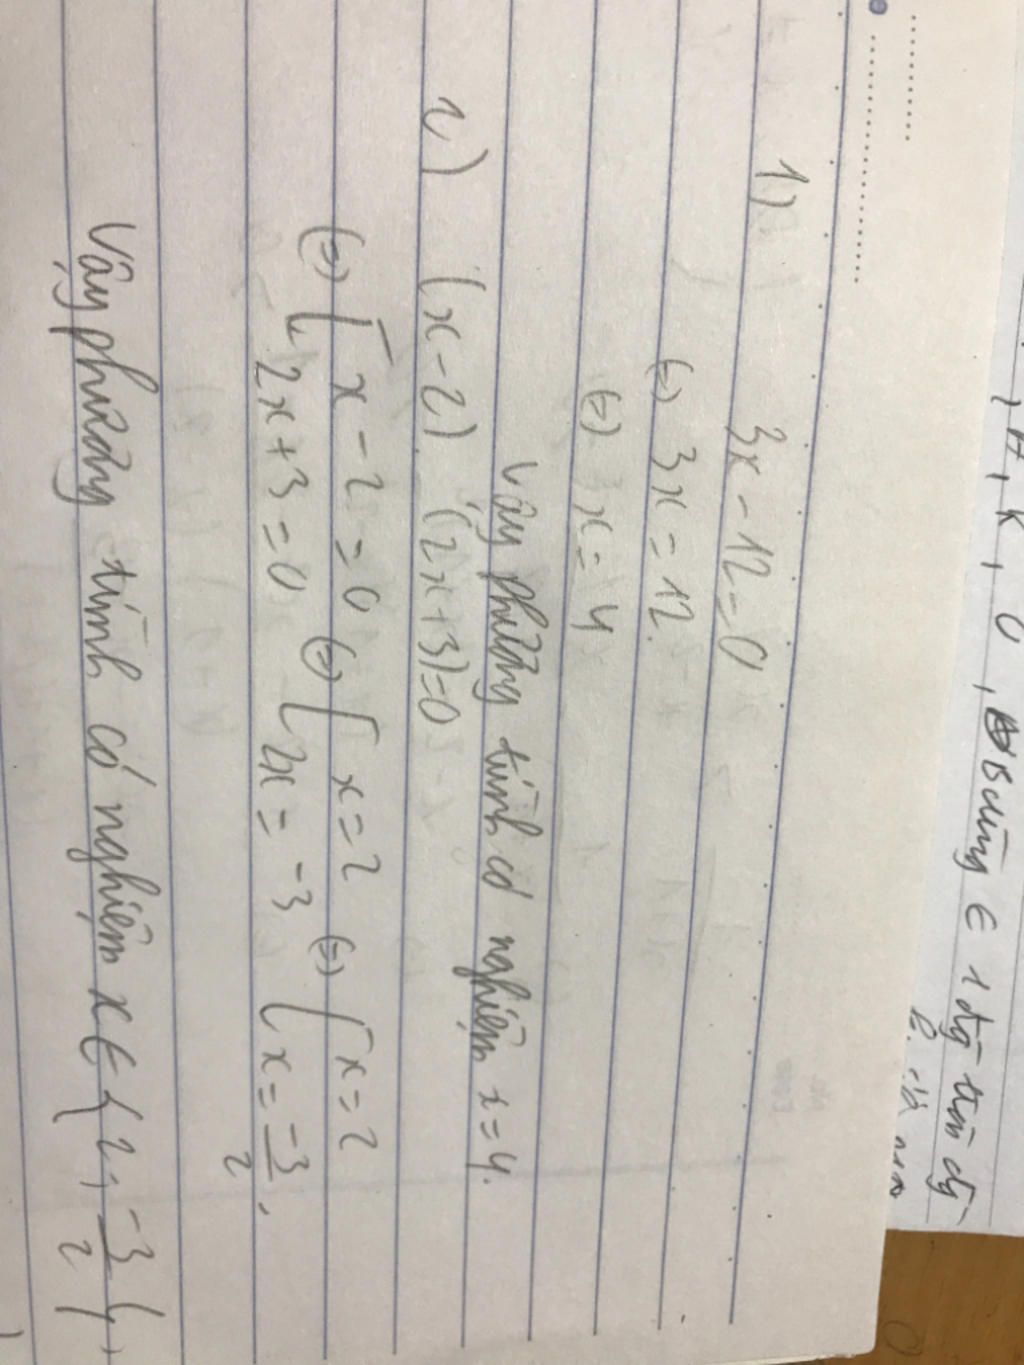 , A, K, O, B cùng ∈ 1 đtg tròn
1) 3x - 12 = 0
(=) 3x = 12.
(=) x = 4
Vậy phương trình có nghiệm x = 4.
2) (x - 2). (2x + 3) = 0
(=) [ x - 2 = 0 (=) [ x = 2 (=) [ x = 2
2x + 3 = 0 2x = -3 x = -3/2.
Vậy phương trình có nghiệm x ∈ { 2; -3/2 }